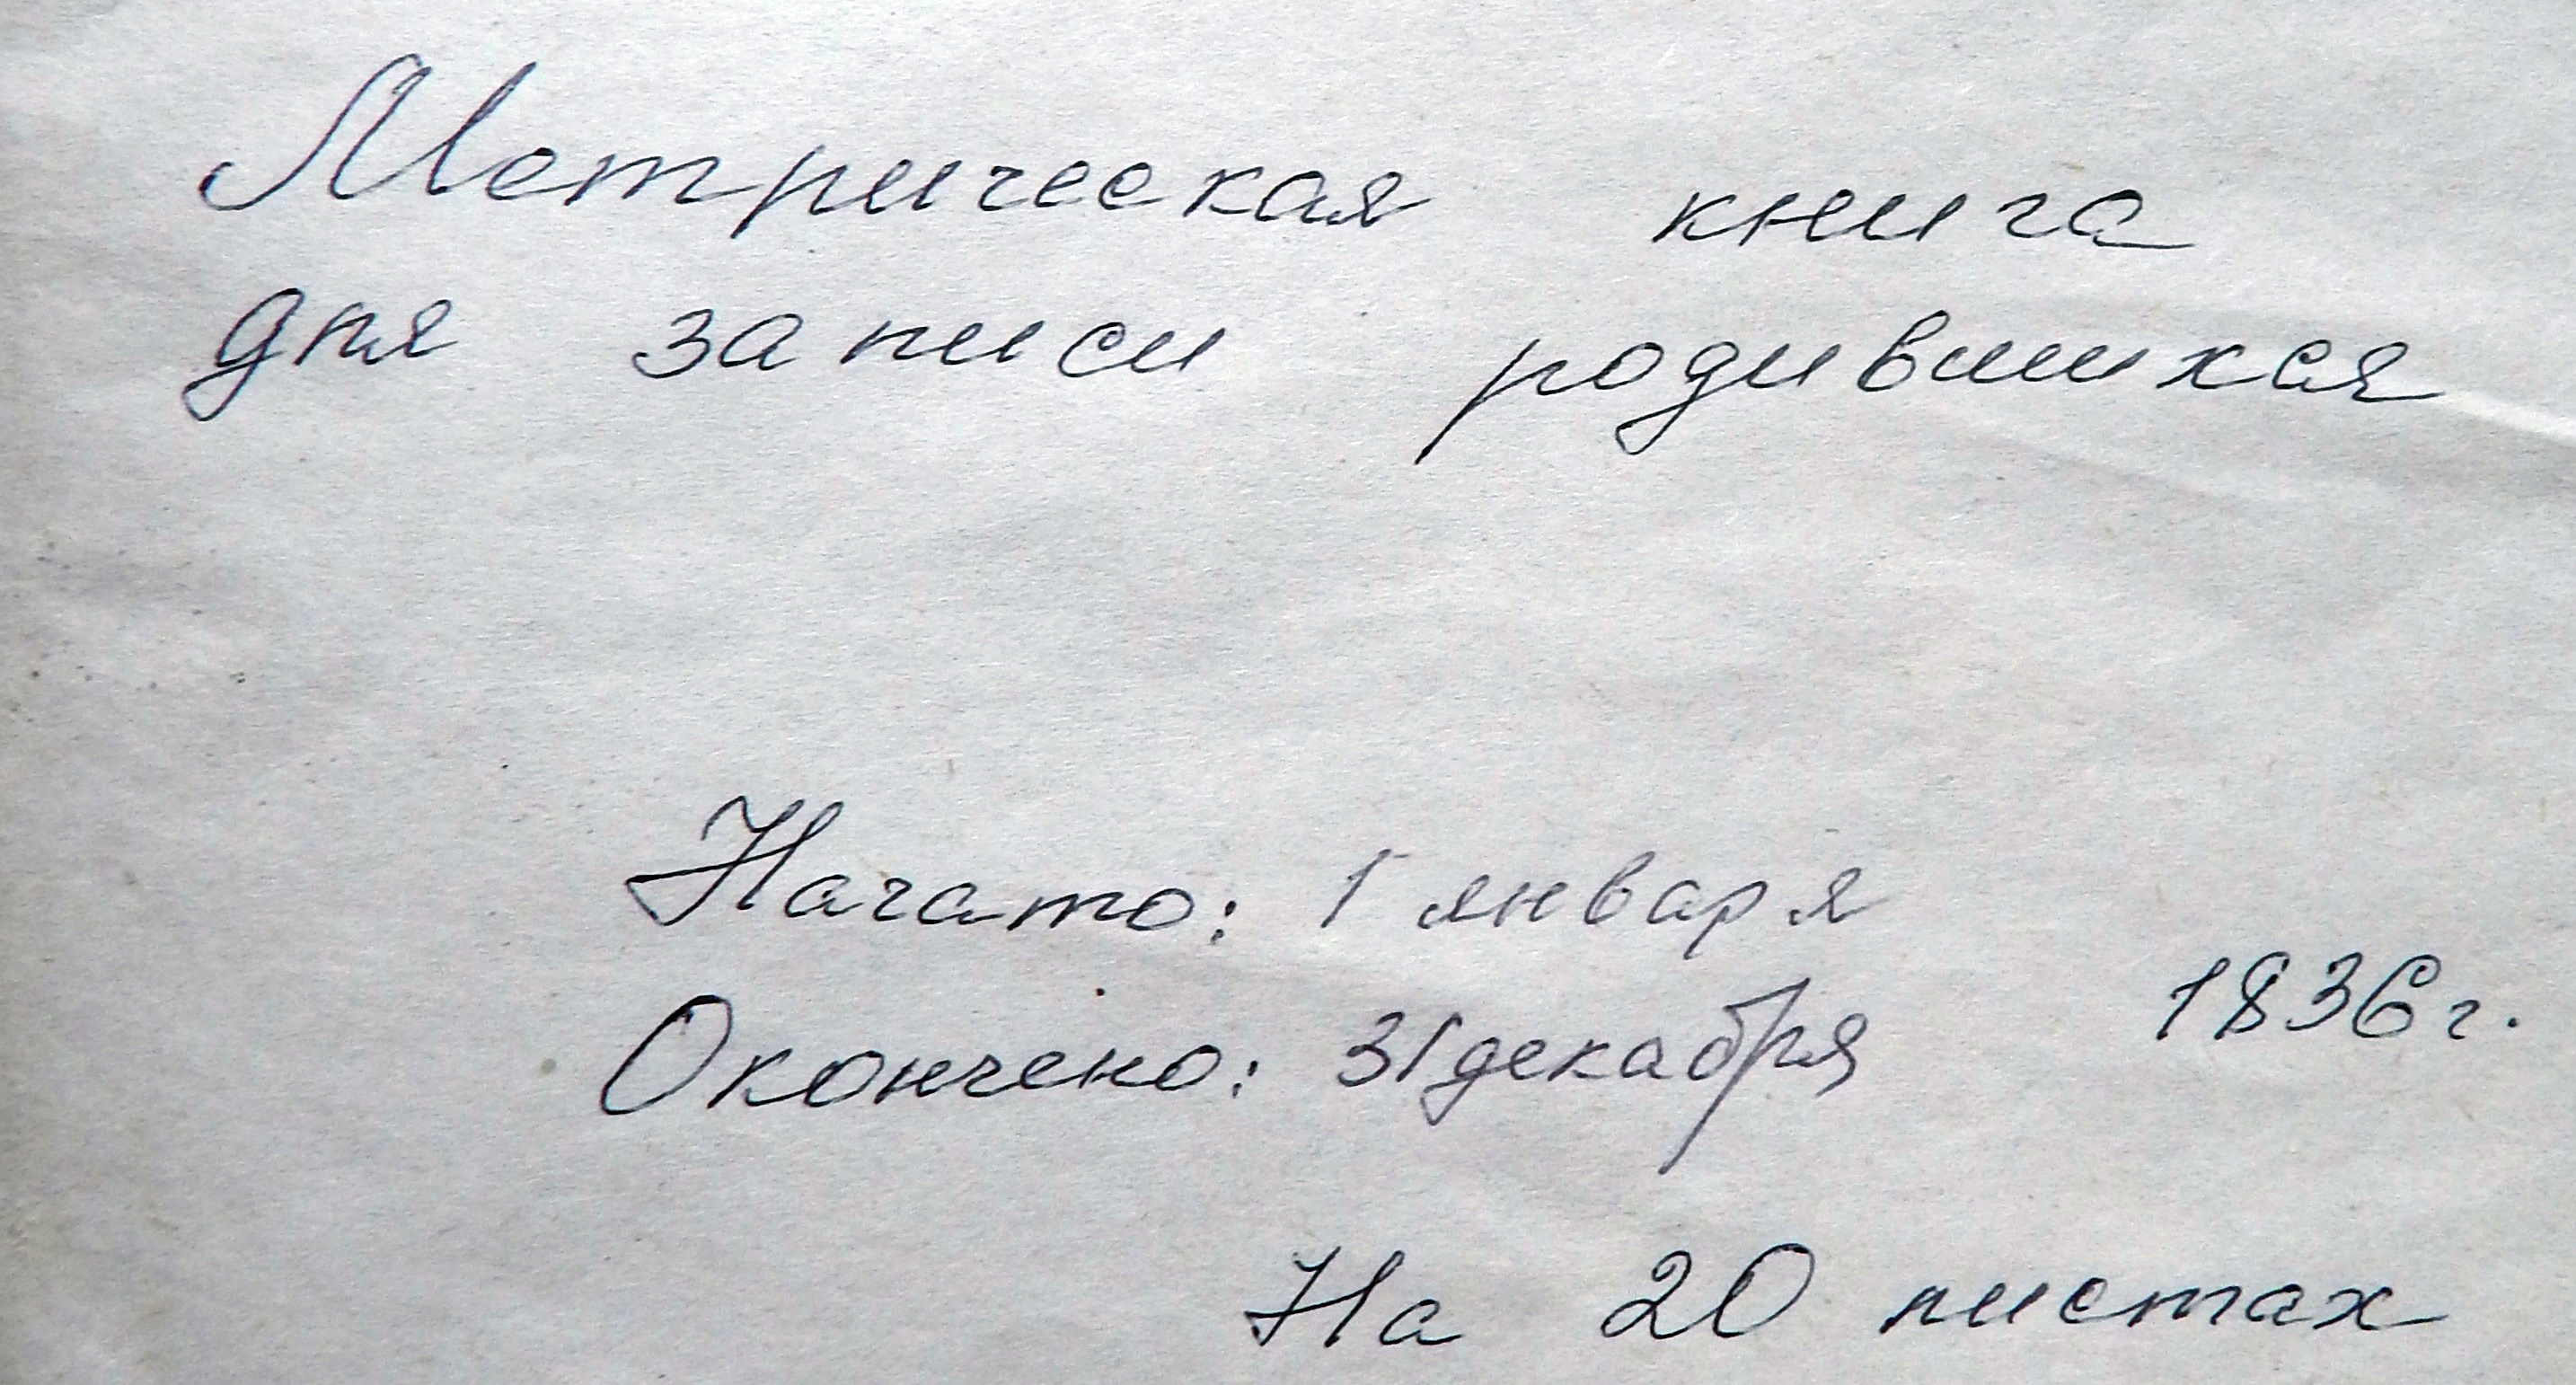 Метрическая книга
для записи родившихся
Начато: 1 января
Окончено: 31 декабря 1836 г.
На 20 листах